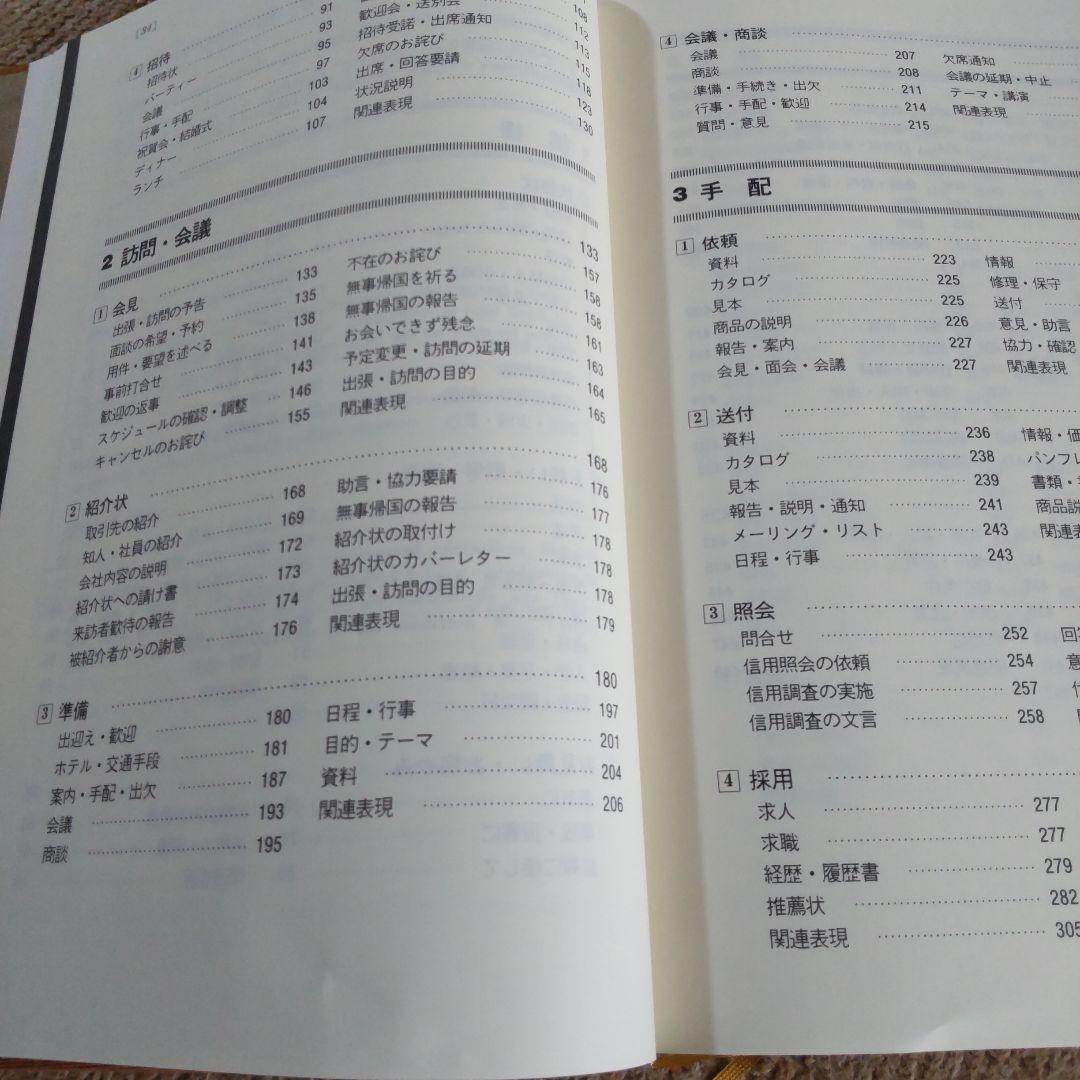 [34]
4 招待
招待状 91
パーティー 93
会議 95
行事・手配 97
祝賀会・結婚式 103
ディナー 104
ランチ 107
歓迎会・送別会 108
招待受諾・出席通知 112
欠席のお詫び 113
出席・回答要請 115
状況説明 118
関連表現 123
130
2 訪問・会議
1 会見 133
出張・訪問の予告 133
面談の希望・予約 135
用件・要望を述べる 138
事前打合せ 141
歓迎の返事 143
スケジュールの確認・調整 146
キャンセルのお詫び 155
不在のお詫び 157
無事帰国を祈る 158
無事帰国の報告 158
お会いできず残念 161
予定変更・訪問の延期 163
出張・訪問の目的 164
関連表現 165
2 紹介状 168
取引先の紹介 168
知人・社員の紹介 169
会社内容の説明 172
紹介状への請け書 173
来訪者歓待の報告 174
被紹介者からの謝意 176
助言・協力要請 176
無事帰国の報告 177
紹介状の取付け 178
紹介状のカバーレター 178
出張・訪問の目的 178
関連表現 179
3 準備 180
出迎え・歓迎 180
ホテル・交通手段 181
案内・手配・出欠 187
会議 193
商談 195
日程・行事 197
目的・テーマ 201
資料 204
関連表現 206
4 会議・商談
会議 207
商談 208
準備・手続き・出欠 211
行事・手配・歓迎 214
質問・意見 215
欠席通知
会議の延期・中止
テーマ・講演
関連表現
3 手 配
1 依頼
資料 223
カタログ 225
見本 225
商品の説明 226
報告・案内 227
会見・面会・会議 227
情報
修理・保守
送付
意見・助言
協力・確認
関連表現
2 送付
資料 236
カタログ 238
見本 239
報告・説明・通知 241
メーリング・リスト 243
日程・行事 243
情報・価
パンフレ
書類・
商品説
関連表
3 照会
問合せ 252
信用照会の依頼 254
信用調査の実施 257
信用調査の文言 258
回答
意
4 採用
求人 277
求職 277
経歴・履歴書 279
推薦状 282
関連表現 305